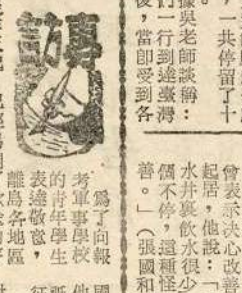 ，一共停留了十
據吳老師談稱：
們一行到達臺灣
後，當即受到各
專訪
曾表示決心改善
起居，他說：「
水井裏飲水很少
個不停，這種怪
善。」（張國和
爲了向報
考軍事學校
的青年學生
表達敬意，
離島各地區